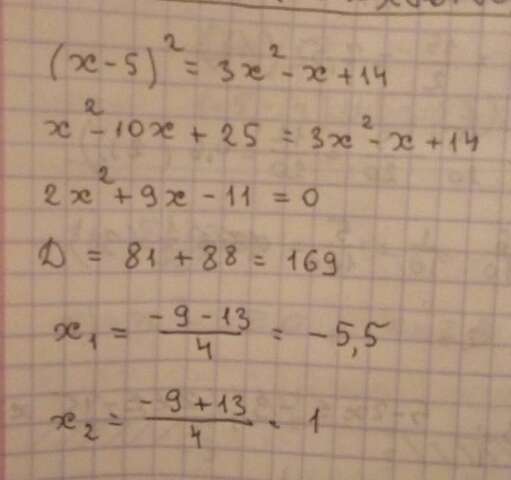 (x-5)² = 3x² - x + 14
x² - 10x + 25 = 3x² - x + 14
2x² + 9x - 11 = 0
D = 81 + 88 = 169
x₁ = \frac{-9-13}{4} = -5,5
x₂ = \frac{-9+13}{4} = 1